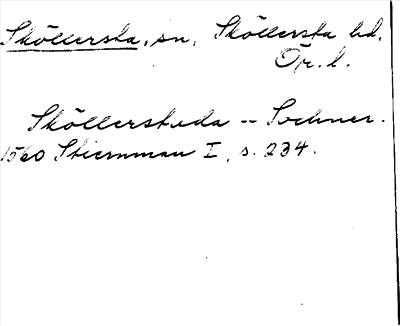 Sköllersta, sn, Sköllersta hd.
Ör. l.
Sköllerstada -- Sochner.
1560 Stiernman I, s. 234.